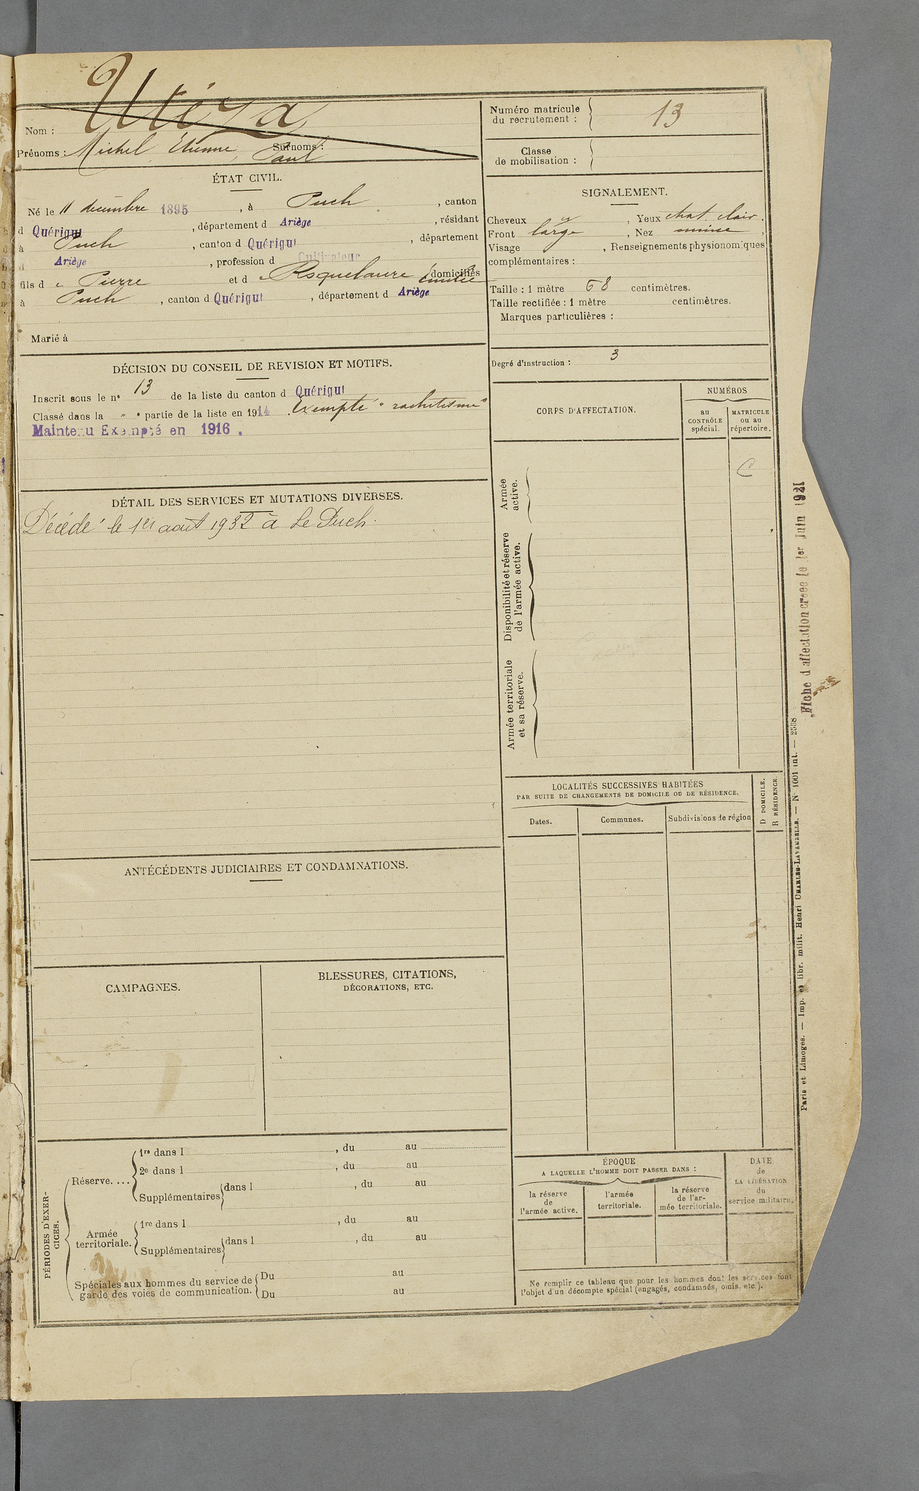 Nom : Utéza
Prénoms : Michel Étienne Paul Surnoms :
ÉTAT CIVIL.
Né le 11 décembre 1895, à Puch, canton
d Quérigut, département d Ariège, résidant
à Puch, canton d Quérigut, département
d Ariège, profession d Cultivateur
fils d e Pierre et d e Roquelaure domiciliés
à Puch, canton d Quérigut, département d Ariège
Marié à
DÉCISION DU CONSEIL DE REVISION ET MOTIFS.
Inscrit sous le n° 13 de la liste du canton d Quérigut
Classé dans la " " partie de la liste en 1914 Exempté "rachitisme"
Maintenu Exempté en 1916.
DÉTAIL DES SERVICES ET MUTATIONS DIVERSES.
Décédé le 1er août 1932 à Le Puch.
ANTÉCÉDENTS JUDICIAIRES ET CONDAMNATIONS.
CAMPAGNES.
BLESSURES, CITATIONS,
DÉCORATIONS, ETC.
PÉRIODES D'EXER-
CICES.
Réserve....
1re dans l , du au
2e dans l , du au
Supplémentaires dans l , du au
Armée
territoriale.
1re dans l , du au
Supplémentaires dans l , du au
Spéciales aux hommes du service de
garde des voies de communication.
Du au
Du au
Numéro matricule
du recrutement : 13
Classe
de mobilisation :
SIGNALEMENT.
Cheveux , Yeux chat. clair.
Front large , Nez mince ,
Visage , Renseignements physionomiques
complémentaires :
Taille : 1 mètre 68 centimètres.
Taille rectifiée : 1 mètre centimètres.
Marques particulières :
Degré d'instruction : 3
CORPS D'AFFECTATION.
NUMÉROS
au
CONTRÔLE
spécial.
MATRICULE
ou au
répertoire.
C
Armée
active.
Disponibilité et réserve
de l'armée active.
Armée territoriale
et sa réserve.
LOCALITÉS SUCCESSIVES HABITÉES
PAR SUITE DE CHANGEMENTS DE DOMICILE OU DE RÉSIDENCE.
D DOMICILE.
R RÉSIDENCE.
Dates.
Communes.
Subdivisions de région
ÉPOQUE
A LAQUELLE L'HOMME DOIT PASSER DANS :
la réserve
de
l'armée active.
l'armée
territoriale.
la réserve
de l'ar-
mée territoriale.
DATE
de
LA LIBÉRATION
du
service militaire.
Ne remplir ce tableau que pour les hommes dont les services font
l'objet d'un décompte spécial (engagés, condamnés, omis, etc.).
Fiche d'affectation créée le 1er Juin 1921
Paris et Limoges. — Imp. et libr. milit. Henri CHARLES-LAVAUZELLE. — N° 1001 int. — 2538